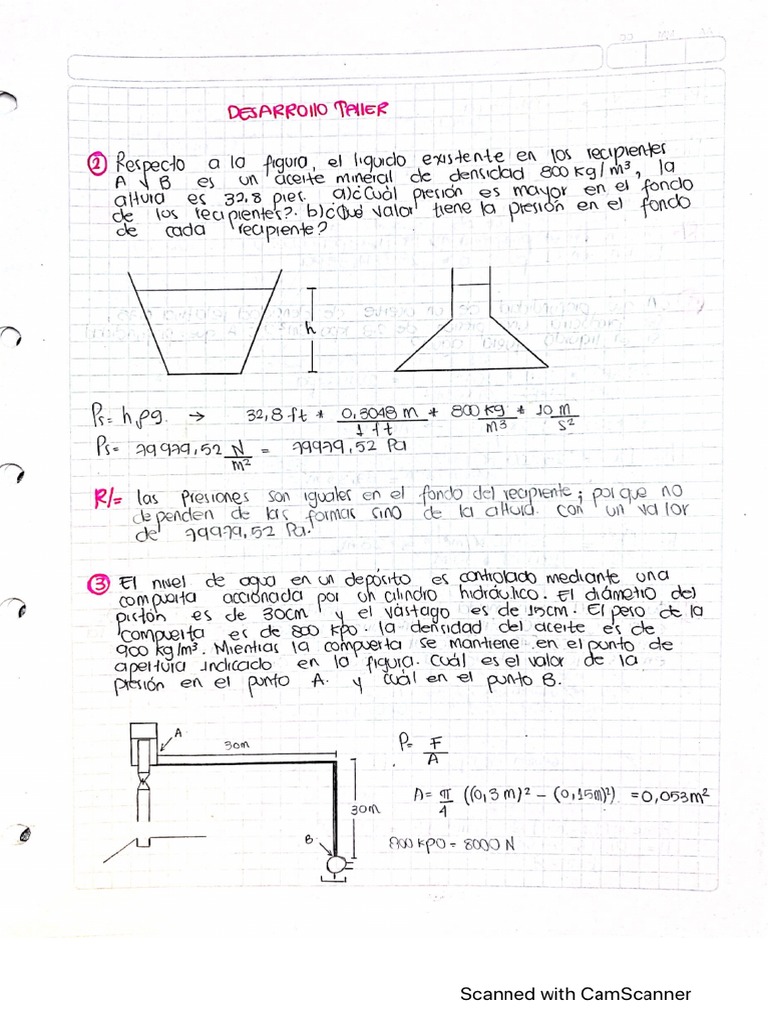 DESARROLLO TALLER
② Respecto a la figura, el liquido existente en los recipientes
A y B es un aceite mineral de densidad 800 kg/m³, la
altura es 32.8 pies. a)¿Cuál presión es mayor en el fondo
de los recipientes?. b)¿Qué valor tiene la presión en el fondo
de cada recipiente?
h
Ps = h ρ g. → 32,8 ft * 0,3048 m / 1 ft * 800 kg / m³ * 10 m / s²
Ps = 79979,52 N / m² = 79979,52 Pa
R/= las Presiones son iguales en el fondo del recipiente; porque no
dependen de las formas sino de la altura. con un valor
de 79979,52 Pa.
③ El nivel de agua en un depósito, es controlado mediante una
compuerta accionada por un cilindro hidráulico. El diámetro del
pistón es de 30cm y el vástago es de 15cm. El peso de la
compuerta es de 800 kpo. la densidad del aceite es de
900 kg/m³. Mientras la compuerta se mantiene en el punto de
apertura indicado en la figura. Cuál es el valor de la
presión en el punto A. y cuál en el punto B.
A
30m
30m
B
P = F / A
A = π / 4 ((0,3 m)² - (0,15m)²) = 0,053 m²
800 kpo = 8000 N
Scanned with CamScanner